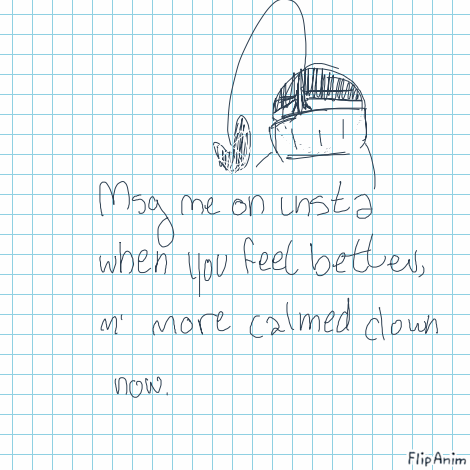 Msg me on insta
when you feel better,
m' more calmed down
now.
FlipAnim